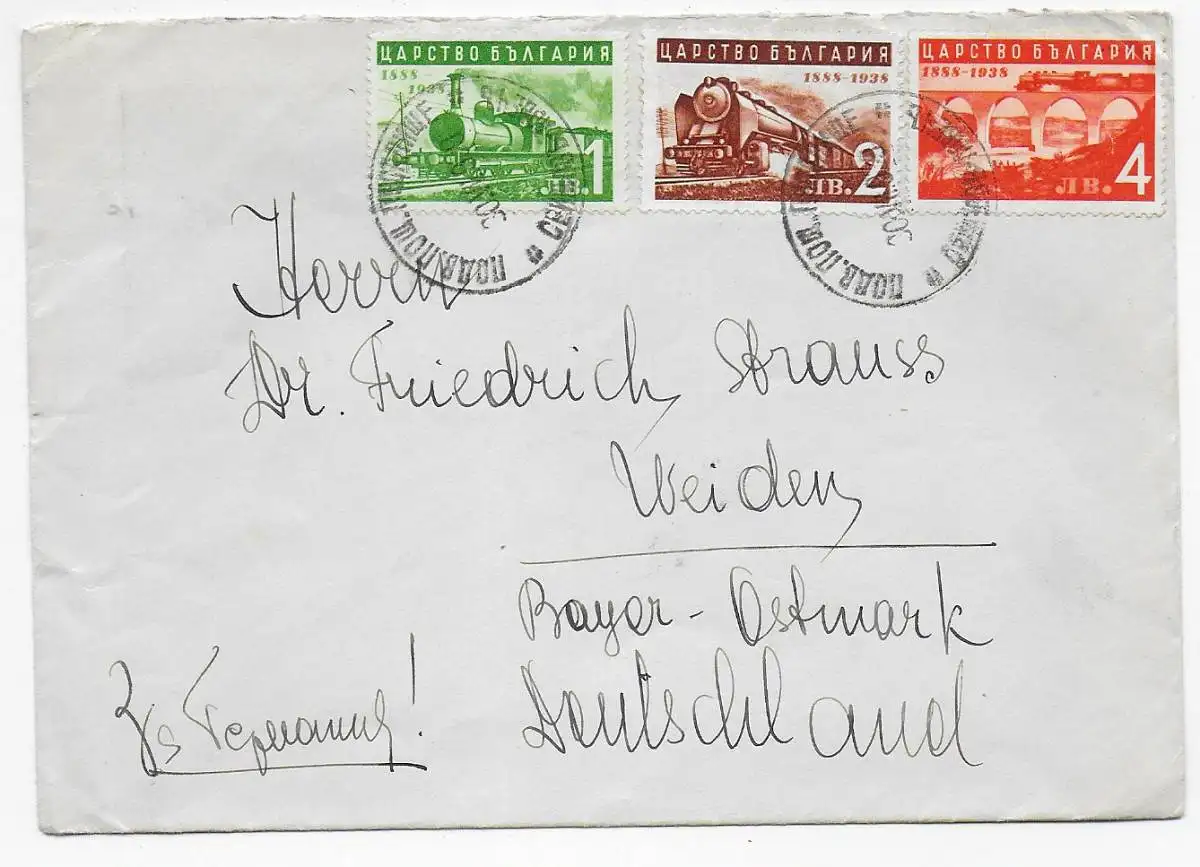 ЦАРСТВО БЪЛГАРИЯ
1888-
1938
ЛВ. 1
ЦАРСТВО БЪЛГАРИЯ
1888-1938
ЛВ. 2
ЦАРСТВО БЪЛГАРИЯ
1888-1938
ЛВ. 4
ПОДВ.ПОЩ.
30
ПОДВ.ПОЩ.
30
Herrn
Dr. Friedrich Strauss
Weiden
Bayer-Ostmark
Deutschland
За Германия!